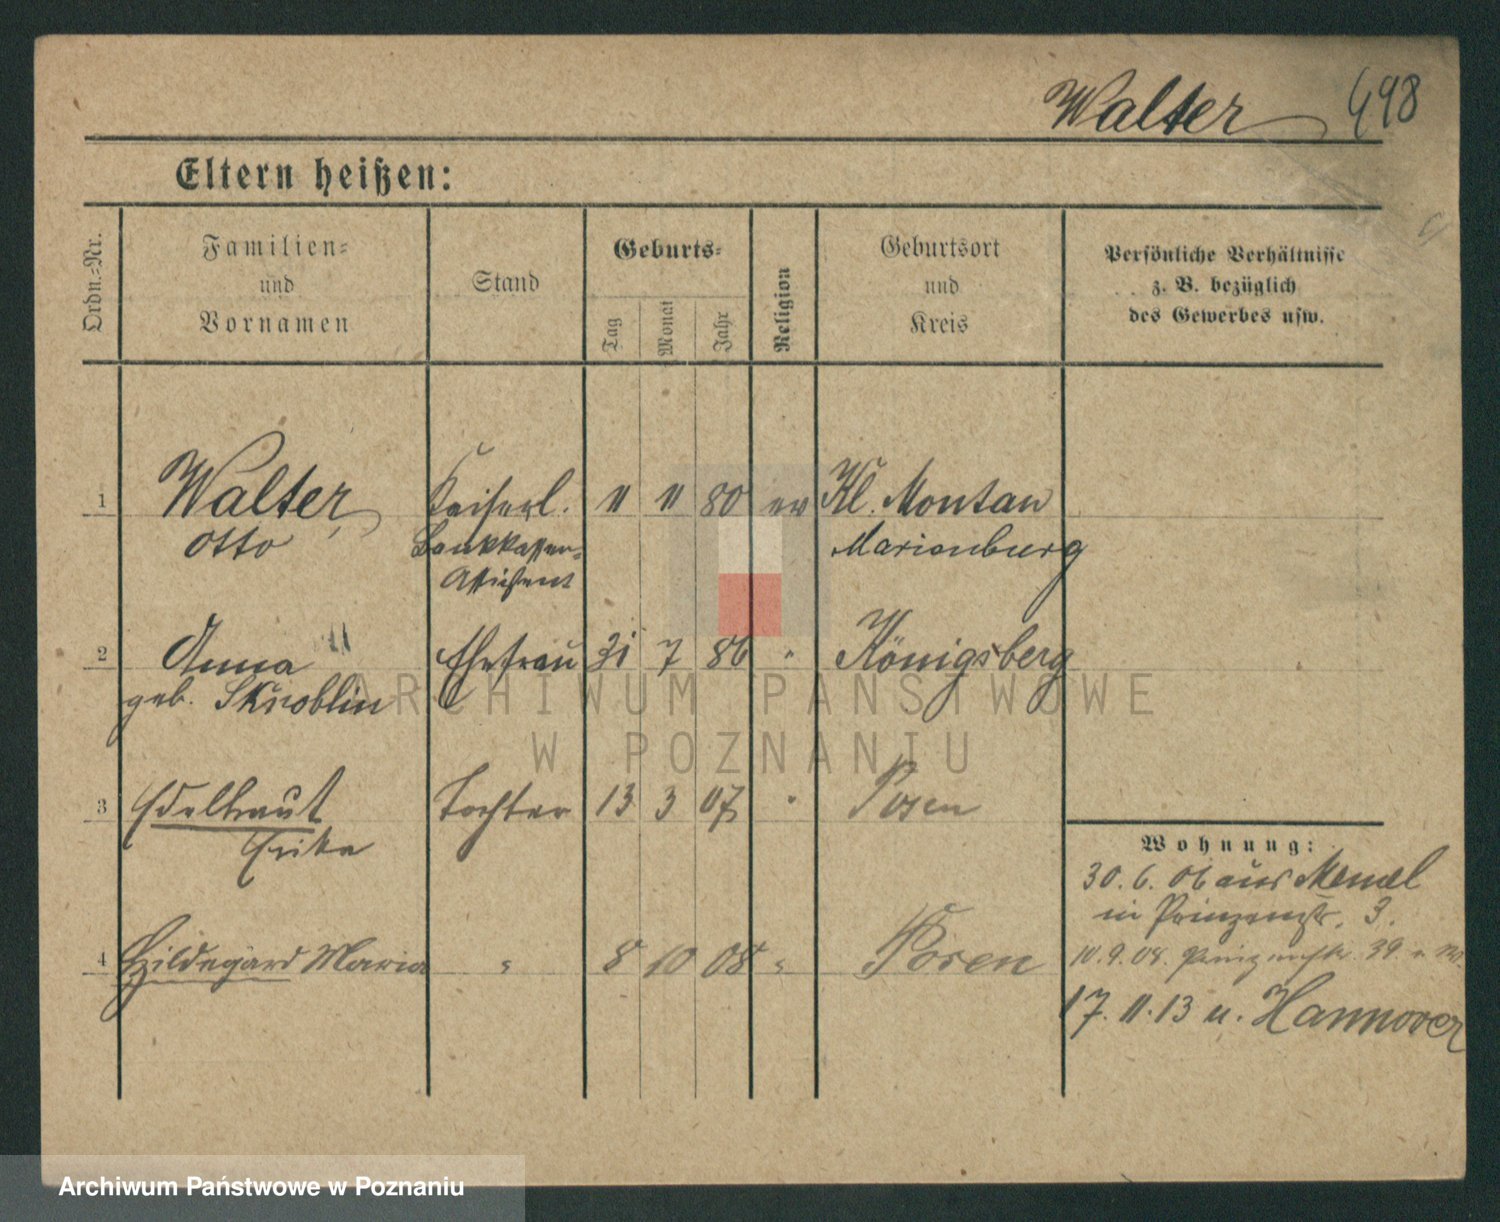 Walter 498
Eltern heißen:
Ordn.-Nr.
Familien-
und
Vornamen
Stand
Geburts-
Tag
Monat
Jahr
Religion
Geburtsort
und
Kreis
Persönliche Verhältnisse
z. B. bezüglich
des Gewerbes usw.
1 Walter, Kaiserl. 11 11 80 ev Kl. Montau
Otto Bankkassen- Marienburg
Assistent
2 Anna Ehefrau 31 7 86 " Königsberg
geb. Sknoblin
3 Edeltraut Tochter 13 3 07 " Posen
Erika
4 Hildegard Maria " 8 10 08 " Posen
Wohnung:
30. 6. 06 aus Memel
in Prinzenstr. 3.
10. 9. 08. Prinzenstr. 39.
17. 11. 13 n. Hannover
ARCHIWUM PAŃSTWOWE
W POZNANIU
Archiwum Państwowe w Poznaniu